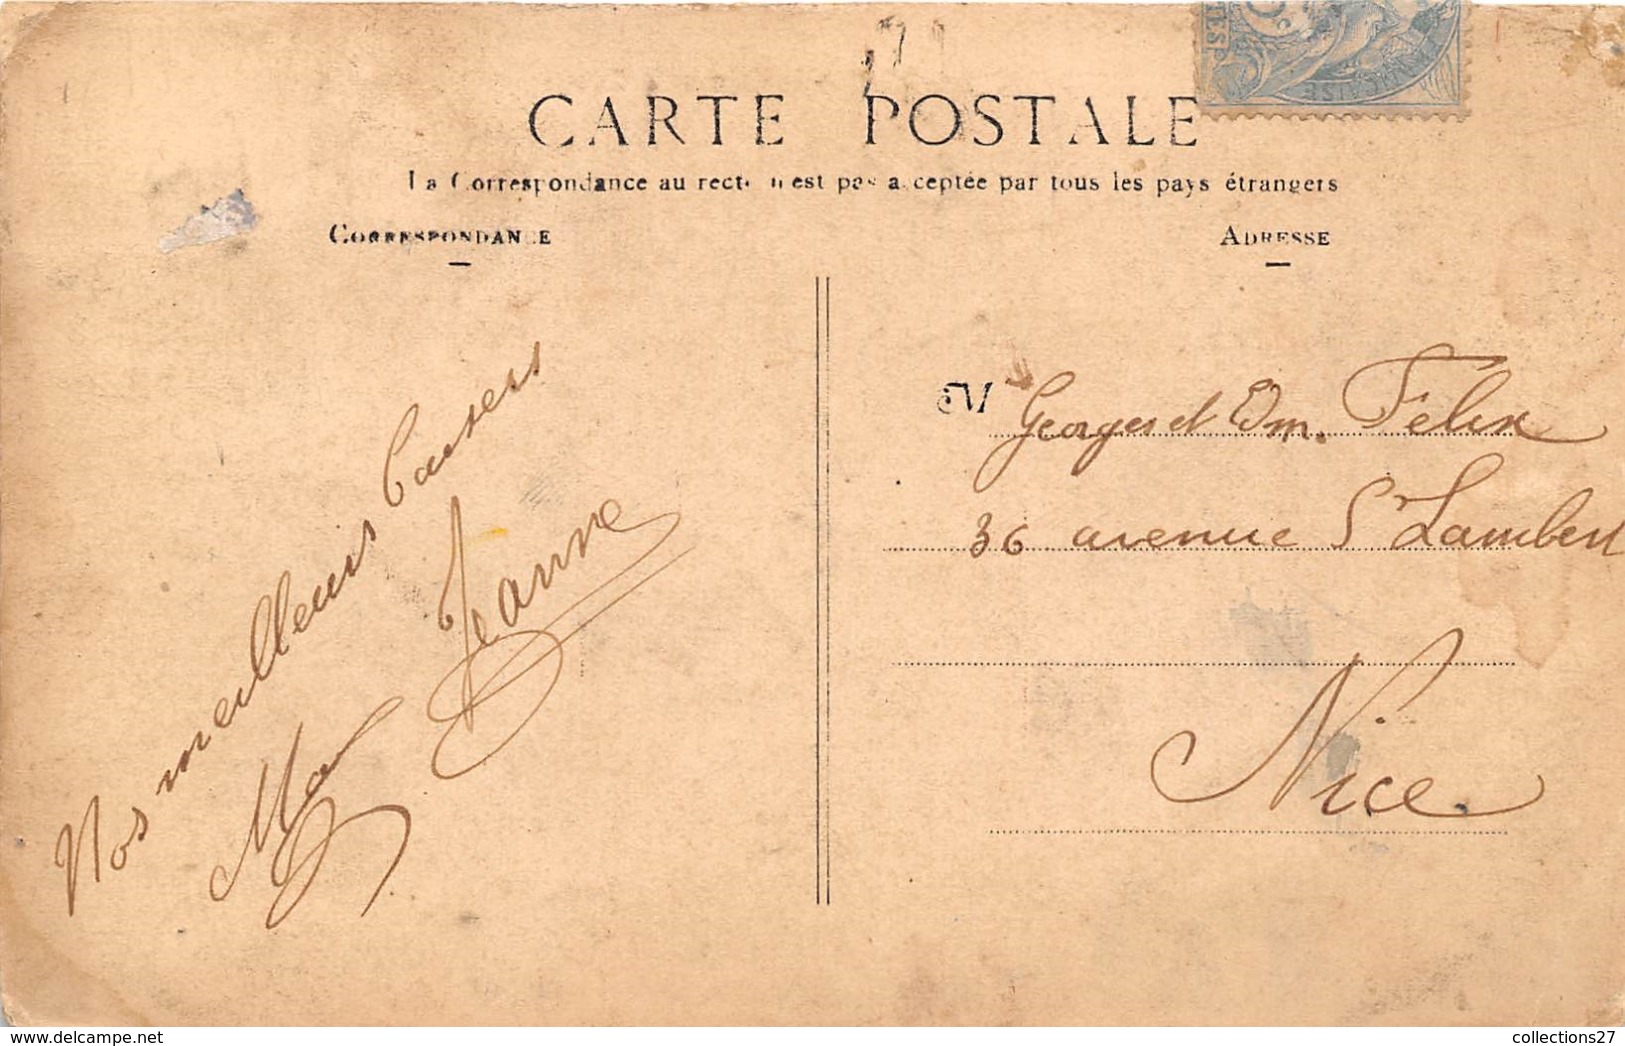 CARTE POSTALE
La Correspondance au recto n'est pas acceptée par tous les pays étrangers
CORRESPONDANCE
ADRESSE
Nos meilleurs baisers
Jeanne
M
Georges et Em. Felix
36 avenue St Lambert
Nice
POSTES
FRANÇAISE
delcampe.net
collections27